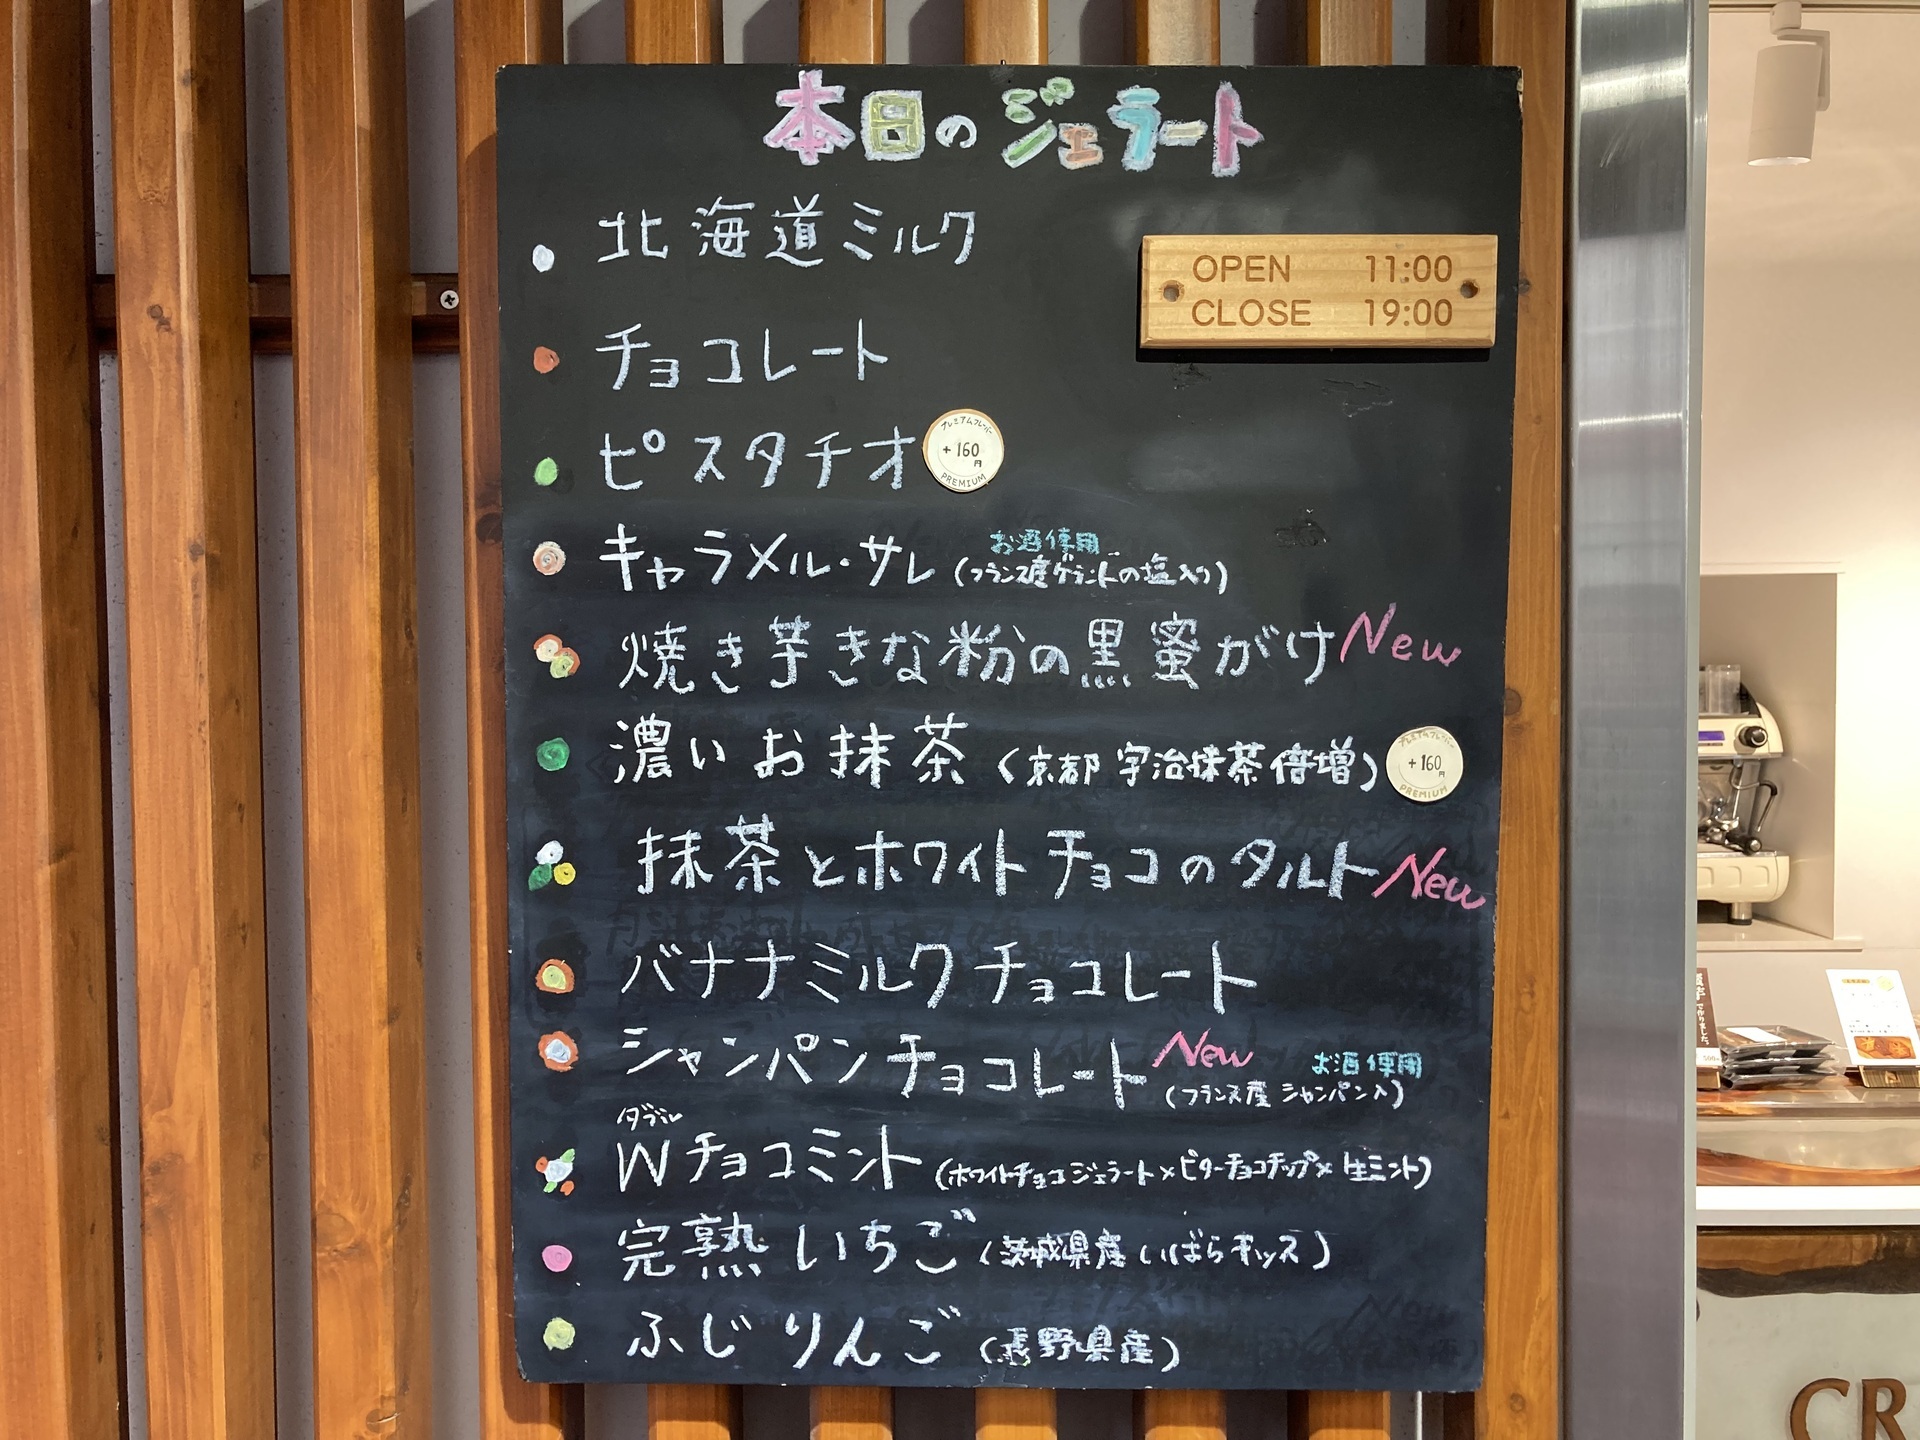 本日のジェラート
北海道ミルク
OPEN 11:00
CLOSE 19:00
チョコレート
ピスタチオ
プレミアムフレーバー
+160円
PREMIUM
キャラメル・サレ
お酒使用
(フランス産ゲラントの塩入り)
焼き芋きな粉の黒蜜がけ New
濃いお抹茶 (京都 宇治抹茶倍増)
プレミアムフレーバー
+160円
PREMIUM
抹茶とホワイトチョコのタルト New
バナナミルクチョコレート
シャンパンチョコレート New
お酒使用
(フランス産 シャンパン入)
ダブル
Wチョコミント (ホワイトチョコジェラート×ビターチョコチップ×生ミント)
完熟いちご (茨城県産 いばらキッス)
ふじりんご (長野県産)
CR